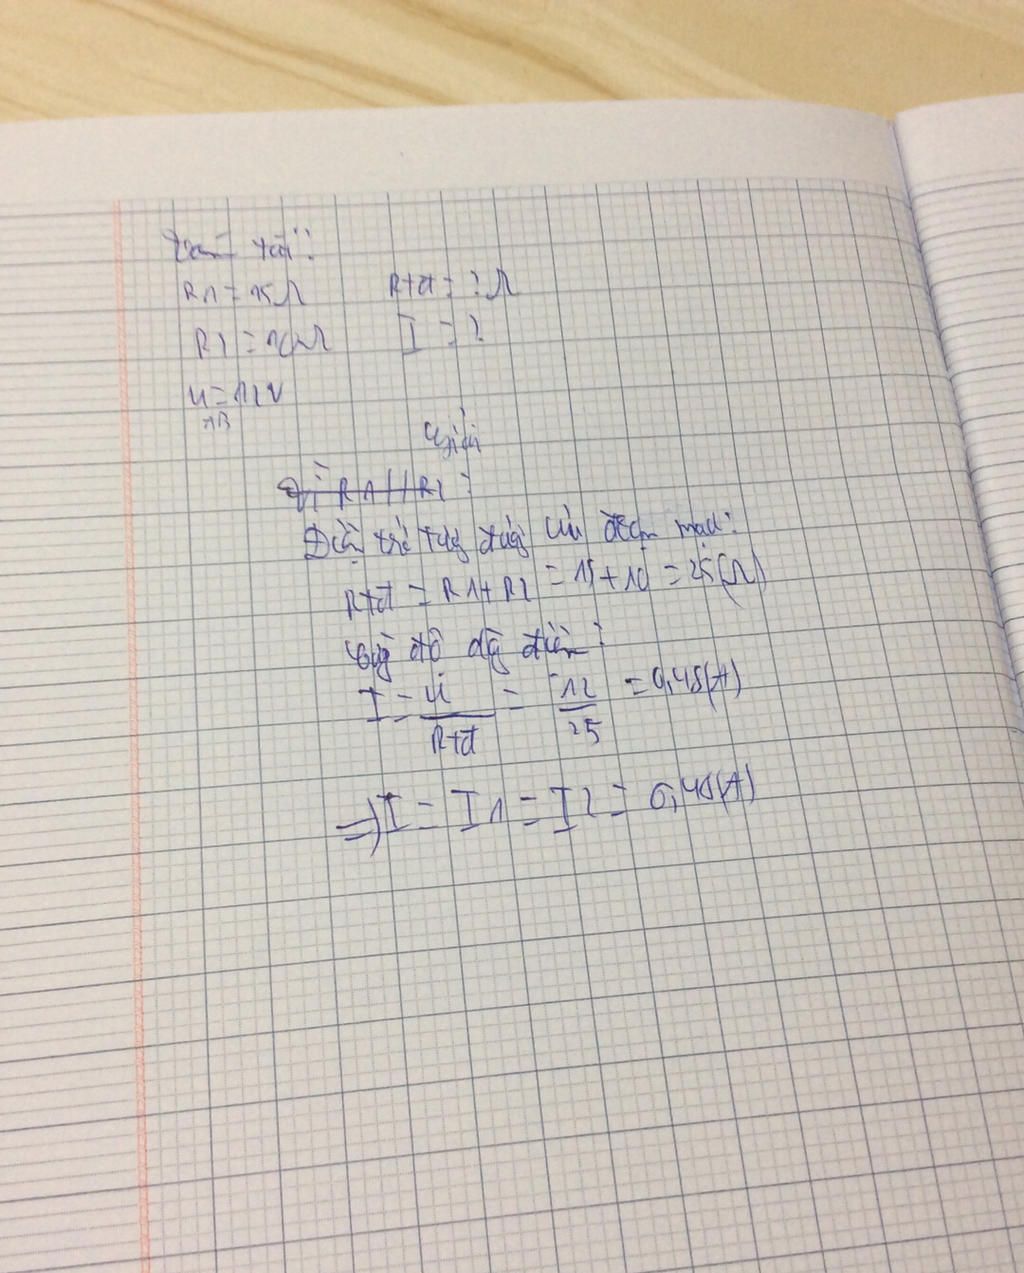 Tóm tắt:
R1 = 15Ω Rtđ = ? Ω
R2 = 10Ω I = ?
U = 12V
AB
Giải
Vì R1//R2:
Điện trở tương đương của đoạn mạch:
Rtđ = R1+R2 = 15+10 = 25(Ω)
cường độ dòng điện:
I = U / Rtđ = 12 / 25 = 0,48(A)
=> I = I1 = I2 = 0,48(A)